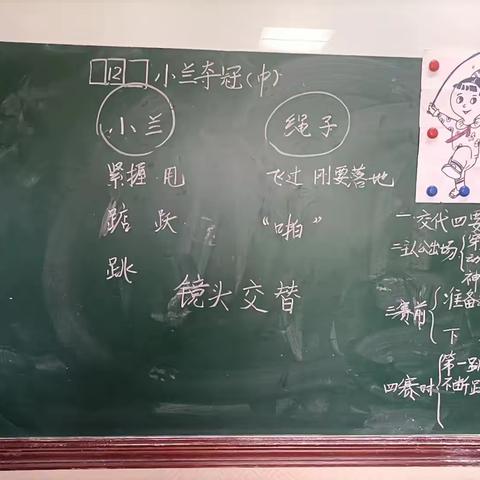 12 小兰夺冠(中)
小兰 绳子
紧握 甩 飞过 刚要落地
踮 跃 "啪"
跳
镜头交替
一 交代四要
二 认公出场 {
动
神
三 赛前 { 准备
下
四 赛时 { 第一
不断